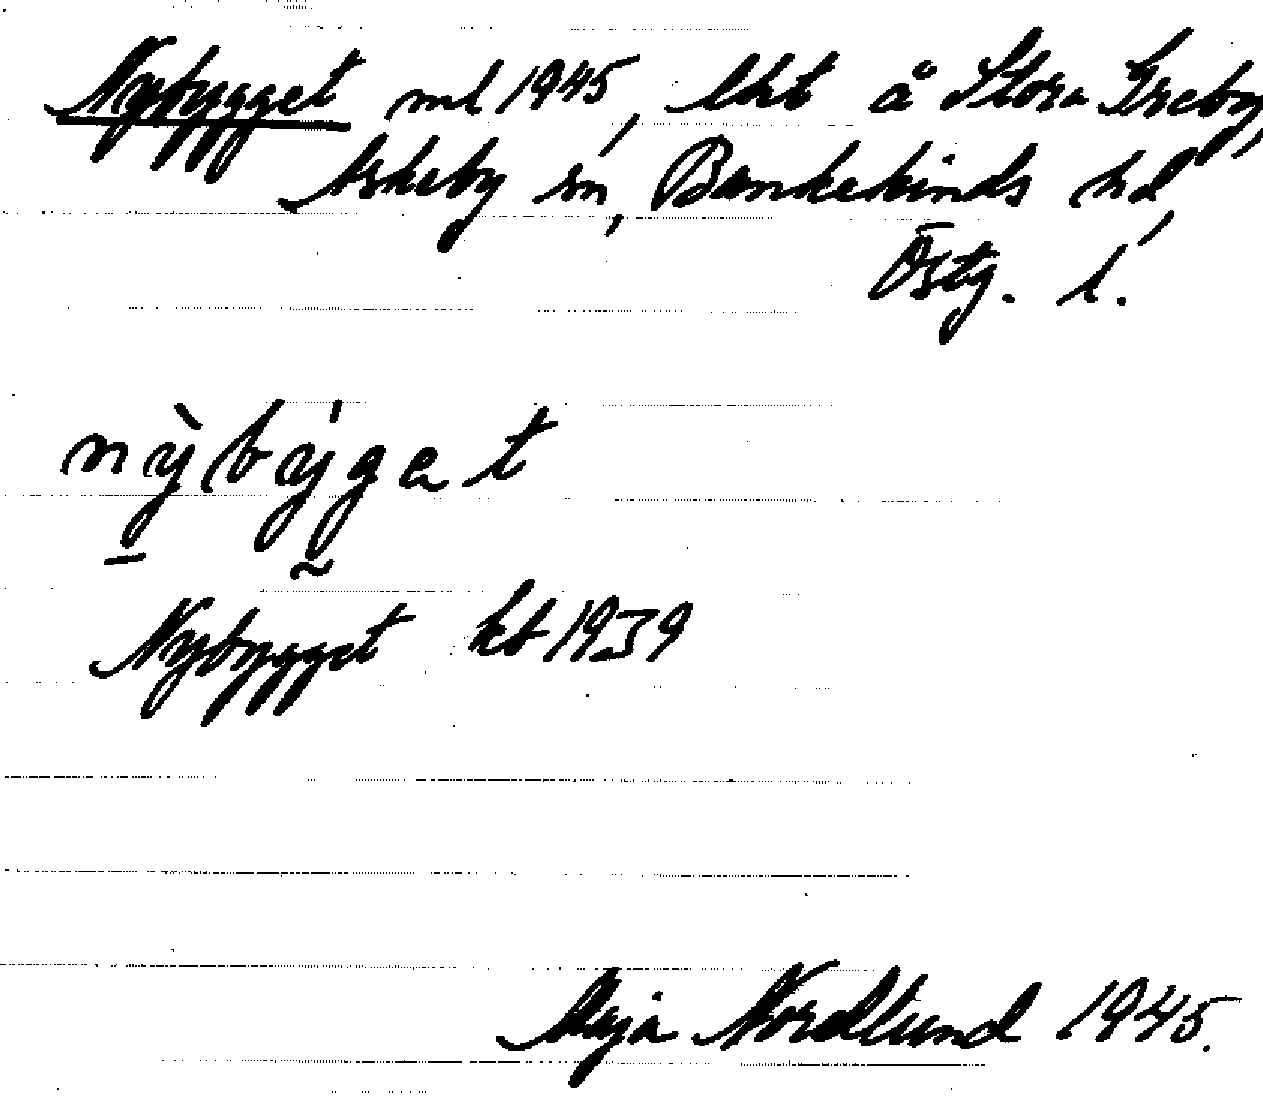 Nybygget ml 1945, lht å Stora Greby,
Askeby sn, Bankekinds hd,
Östg. l.
nỳ̱býgat
Nybygget kb 1939
Maja Nordlund 1945.